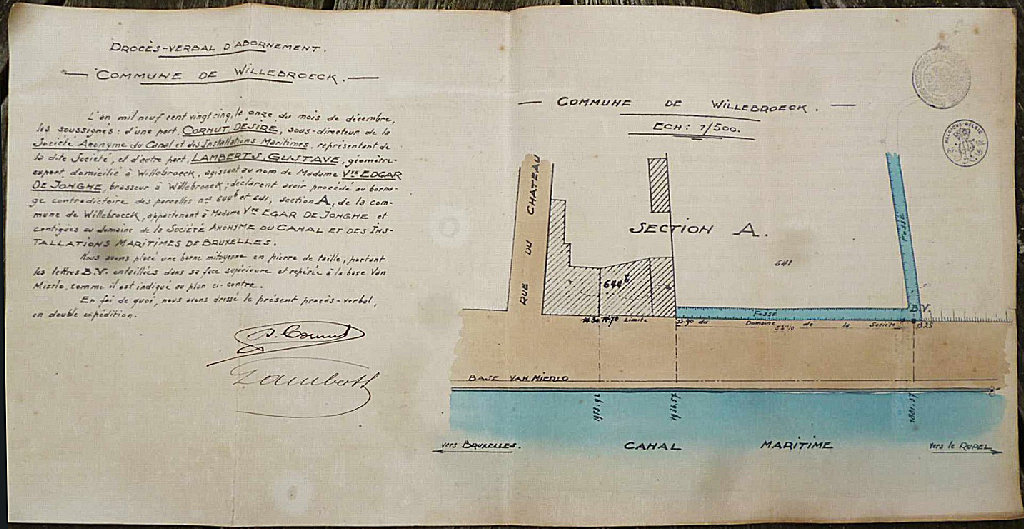 PROCÈS-VERBAL D'ABORNEMENT.
COMMUNE DE WILLEBROECK.
L'an mil neuf cent vingt cinq, le onze du mois de décembre,
les soussignés: d'une part, CORNUT DÉSIRÉ, sous-directeur de la
Société Anonyme du Canal et des Installations Maritimes, représentant de
la dite Société, et d'autre part, LAMBERTS, GUSTAVE, géomètre-
expert domicilié à Willebroeck, agissant au nom de Madame Vve EDGAR
DE JONGHE, brasseur à Willebroeck; déclarent avoir procédé au borna-
ge contradictoire des parcelles nos et 641, section A, de la com-
mune de Willebroeck, appartenant à Madame Vve EGAR DE JONGHE et
contiguës au domaine de la SOCIÉTÉ ANONYME DU CANAL ET DES INS-
TALLATIONS MARITIMES DE BRUXELLES.
Nous avons placé une borne mitoyenne en pierre de taille, portant
les lettres B.V. entaillées dans sa face supérieure et repérée à la base Van
Mierlo, comme il est indiqué au plan ci-contre.
En foi de quoi, nous avons dressé le présent procès-verbal,
en double expédition.
D. Cornut
Lamberts
COMMUNE DE WILLEBROECK.
ECH: 1/500.
RUE DU CHATEAU
SECTION A.
Fossé
641
B.V.
Fossé
Limite du Domaine de la Société
BASE VAN MIERLO
vers BRUXELLES.
CANAL MARITIME
vers le RUPEL